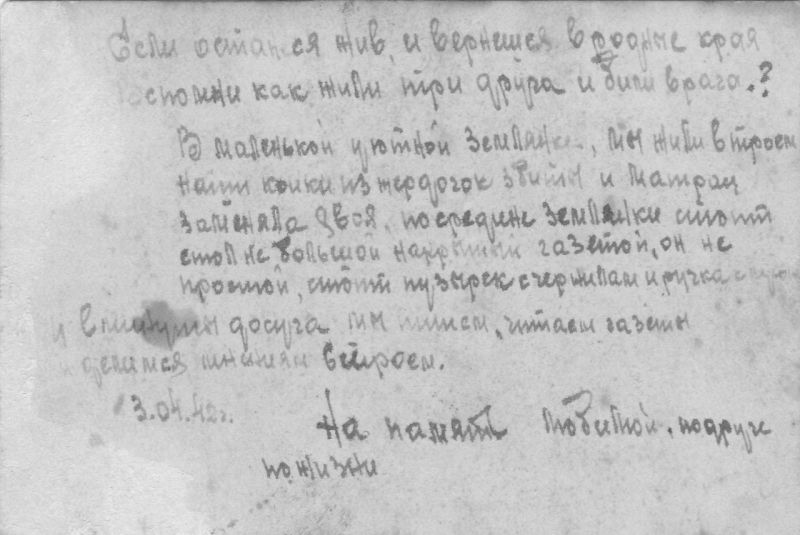 Если останся жив, и вернешся в родные края
вспомни как жили три друга и били врага.?
В маленькой уютной землянке, мы жили втроем
наши койки из жердочок збиты и матрац
заменяла хвоя, посредине землянки стоит
стол не большой накрытый газетой, он не
простой, стоит пузырек с чернилам и ручка
и в минуты досуга мы пишем, читаем газеты
и делимся мнениям втроем.
3.04.42г.
На память любимой, подруге
по жизни